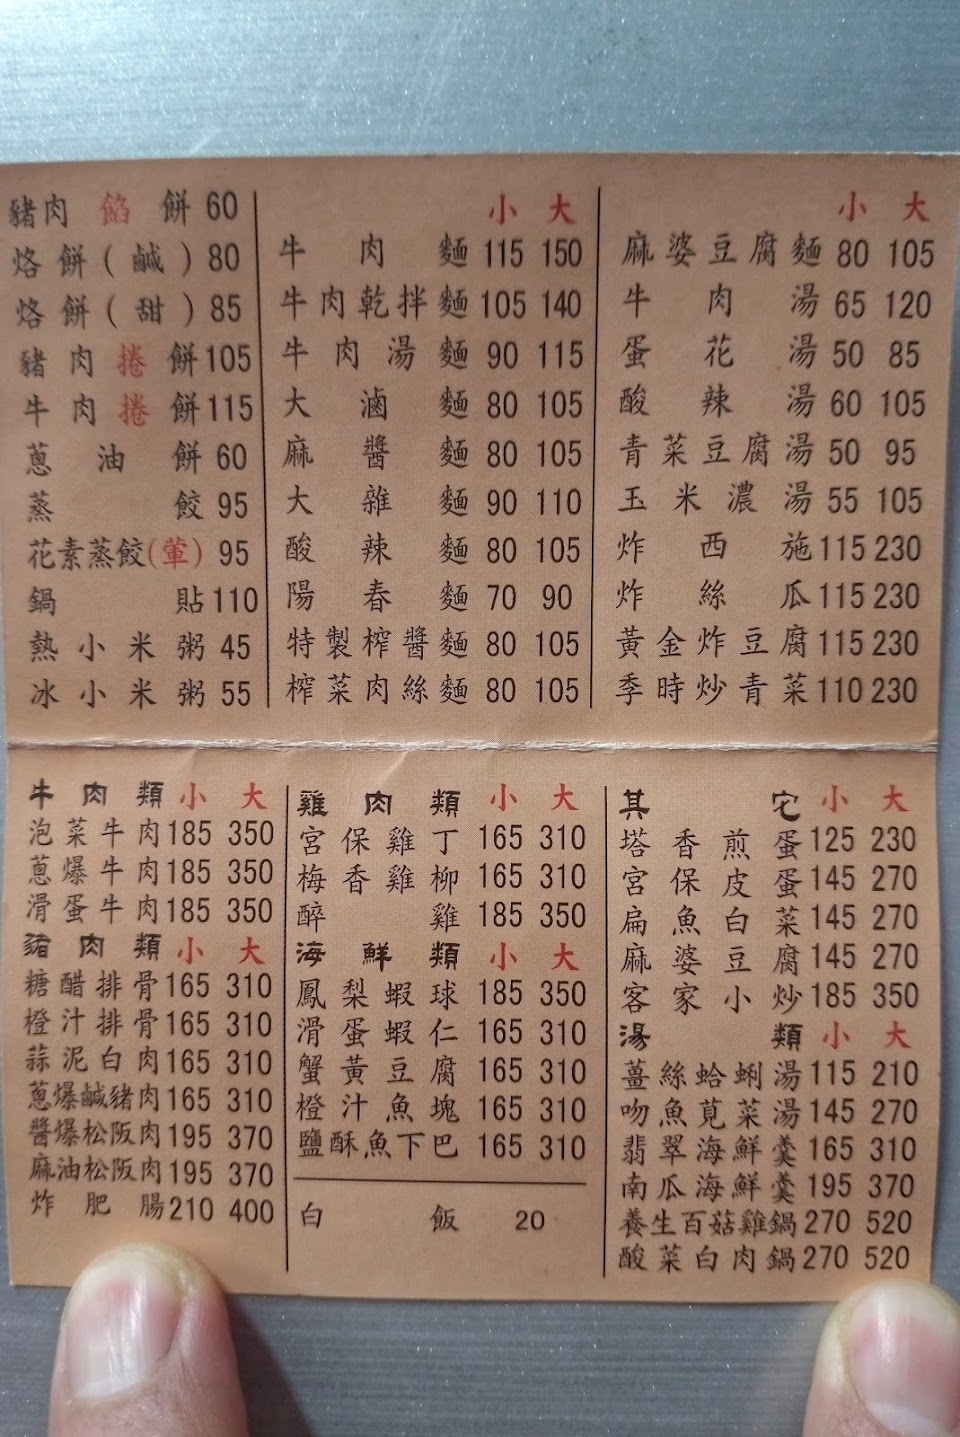 豬肉餡餅 60
烙餅(鹹) 80
烙餅(甜) 85
豬肉捲餅 105
牛肉捲餅 115
蔥油餅 60
蒸餃 95
花素蒸餃(葷) 95
鍋貼 110
熱小米粥 45
冰小米粥 55
小 大
牛肉麵 115 150
牛肉乾拌麵 105 140
牛肉湯麵 90 115
大滷麵 80 105
麻醬麵 80 105
大雜麵 90 110
酸辣麵 80 105
陽春麵 70 90
特製榨醬麵 80 105
榨菜肉絲麵 80 105
小 大
麻婆豆腐麵 80 105
牛肉湯 65 120
蛋花湯 50 85
酸辣湯 60 105
青菜豆腐湯 50 95
玉米濃湯 55 105
炸西施 115 230
炸絲瓜 115 230
黃金炸豆腐 115 230
季時炒青菜 110 230
牛肉類 小 大
泡菜牛肉 185 350
蔥爆牛肉 185 350
滑蛋牛肉 185 350
豬肉類 小 大
糖醋排骨 165 310
橙汁排骨 165 310
蒜泥白肉 165 310
蔥爆鹹豬肉 165 310
醬爆松阪肉 195 370
麻油松阪肉 195 370
炸肥腸 210 400
雞肉類 小 大
宮保雞丁 165 310
梅香雞柳 165 310
醉雞 185 350
海鮮類 小 大
鳳梨蝦球 185 350
滑蛋蝦仁 165 310
蟹黃豆腐 165 310
橙汁魚塊 165 310
鹽酥魚下巴 165 310
白飯 20
其它 小 大
塔香煎蛋 125 230
宮保皮蛋 145 270
扁魚白菜 145 270
麻婆豆腐 145 270
客家小炒 185 350
湯類 小 大
薑絲蛤蜊湯 115 210
吻魚莧菜湯 145 270
翡翠海鮮羹 165 310
南瓜海鮮羹 195 370
養生百菇雞鍋 270 520
酸菜白肉鍋 270 520